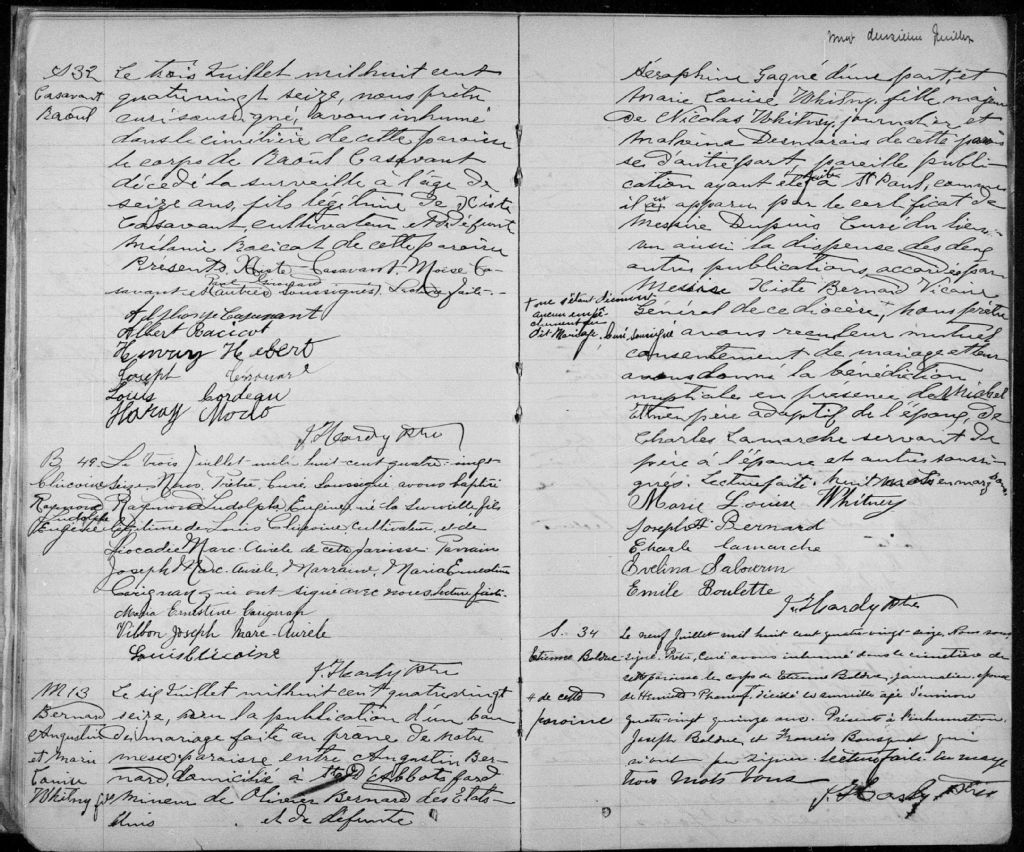 S 32
Casavant
Raoul
Le trois Juillet mil huit cent
quatrevingt seize, nous prêtre
curé soussigné, avons inhumé
dans le cimétière de cette paroisse
le corps de Raoul Casavant
décédé la surveille à l'âge de
seize ans, fils légitime de Xiste
Casavant, cultivateur et de défunte
Mélanie Racicot de cette paroisse
Présents, Xiste Casavant, Moïse Ca-
savant et autres soussignés. Lecture faite.
Alphonse Casavant
Albert Racicot
Henry Hebert
Joseph Chouard
Louis Cordeau
Haray Modo
J. Hardy Ptre
B 49.
Chicoine
Raymond
Rudolphe
Eugène
Le trois Juillet mil huit cent quatre-vingt
seize Nous, Prêtre, Curé, Soussigné avons baptisé
Raymond Rudolphe Eugène, né la surveille, fils
légitime de Louis Chicoine, Cultivateur, et de
Léocadie Marc-Aurèle de cette paroisse. Parrain
Joseph Marc-Aurèle, Marraine, Maria Ernestine
Carignan, qui ont signé avec nous. Lecture faite.
Maria Ernestine Carignan
Vilbon Joseph Marc-Aurèle
Louis Chicoine
J. Hardy Ptre
M 13
Bernard
Augustin
et Marie
Louise
Whitny
Le six Juillet mil huit cent quatrevingt
seize, vu la publication d'un ban
de mariage faite au prône de notre
messe paroissiale entre Augustin Ber-
nard, domicilié à d'Abbotsford
fils mineur de Olivier Bernard des Etats-
Unis et de défunte
deuxième Juillet
Séraphine Gagné d'une part, et
Marie Louise Whitny, fille majeure
de Nicolas Whitney, journalier, et
Malvina Desmarais de cette parois-
se d'autre part, pareille publi-
cation ayant été faite à St Paul, comme
il a apparu par le certificat de
Messire Dupuis Curé du lieu-
vu aussi la dispense des deux
autres publications, accordée par
Messire Xiste Bernard Vicaire
Général de ce diocèse, + nous prêtre
+ ne s'étant découvert
aucun empê-
chement au
dit Mariage,
Curé, soussigné avons reçu leur mutuel
consentement de mariage et leur
avons donné la bénédiction
nuptiale en présence de Michel
père adoptif de l'époux, de
Charles Lamarche servant de
père à l'épouse et autres soussi-
gnés. Lecture faite, huit mots en marge bons.
Marie Louise Whitney
Joseph A Bernard
Charle lamarche
Evelina Sabourin
Emile Boulette
J. Hardy Ptre
S. 34
Etienne Bolduc
+ de cette
paroisse
Le neuf Juillet mil huit cent quatre vingt-seize, Nous sous
signé Prêtre, Curé avons inhumé dans le cimetière de
cette paroisse le corps de Etienne Bolduc, journalier, époux
de Henriette décédé l'avant veille agé d'environ
quatre vingt quinze ans. Présents à l'inhumation
Joseph Bolduc, et Francis Bousquet qui
n'ont pu signer. Lecture faite. En marge
trois mots bons
J. Hardy, Ptre